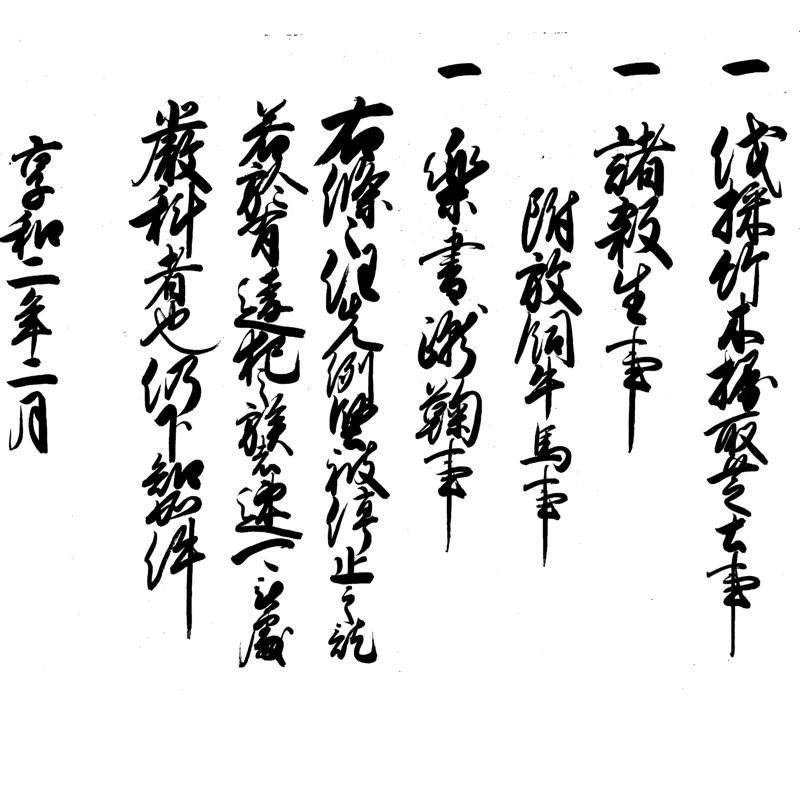 一 伐採竹木掘取芝土事
一 諸殺生事
附放飼牛馬事
一 楽書蹴鞠事
右條々任先例堅被停止之訖
若於有違犯之族者速可被處
嚴科者也仍下知如件
享和二年二月